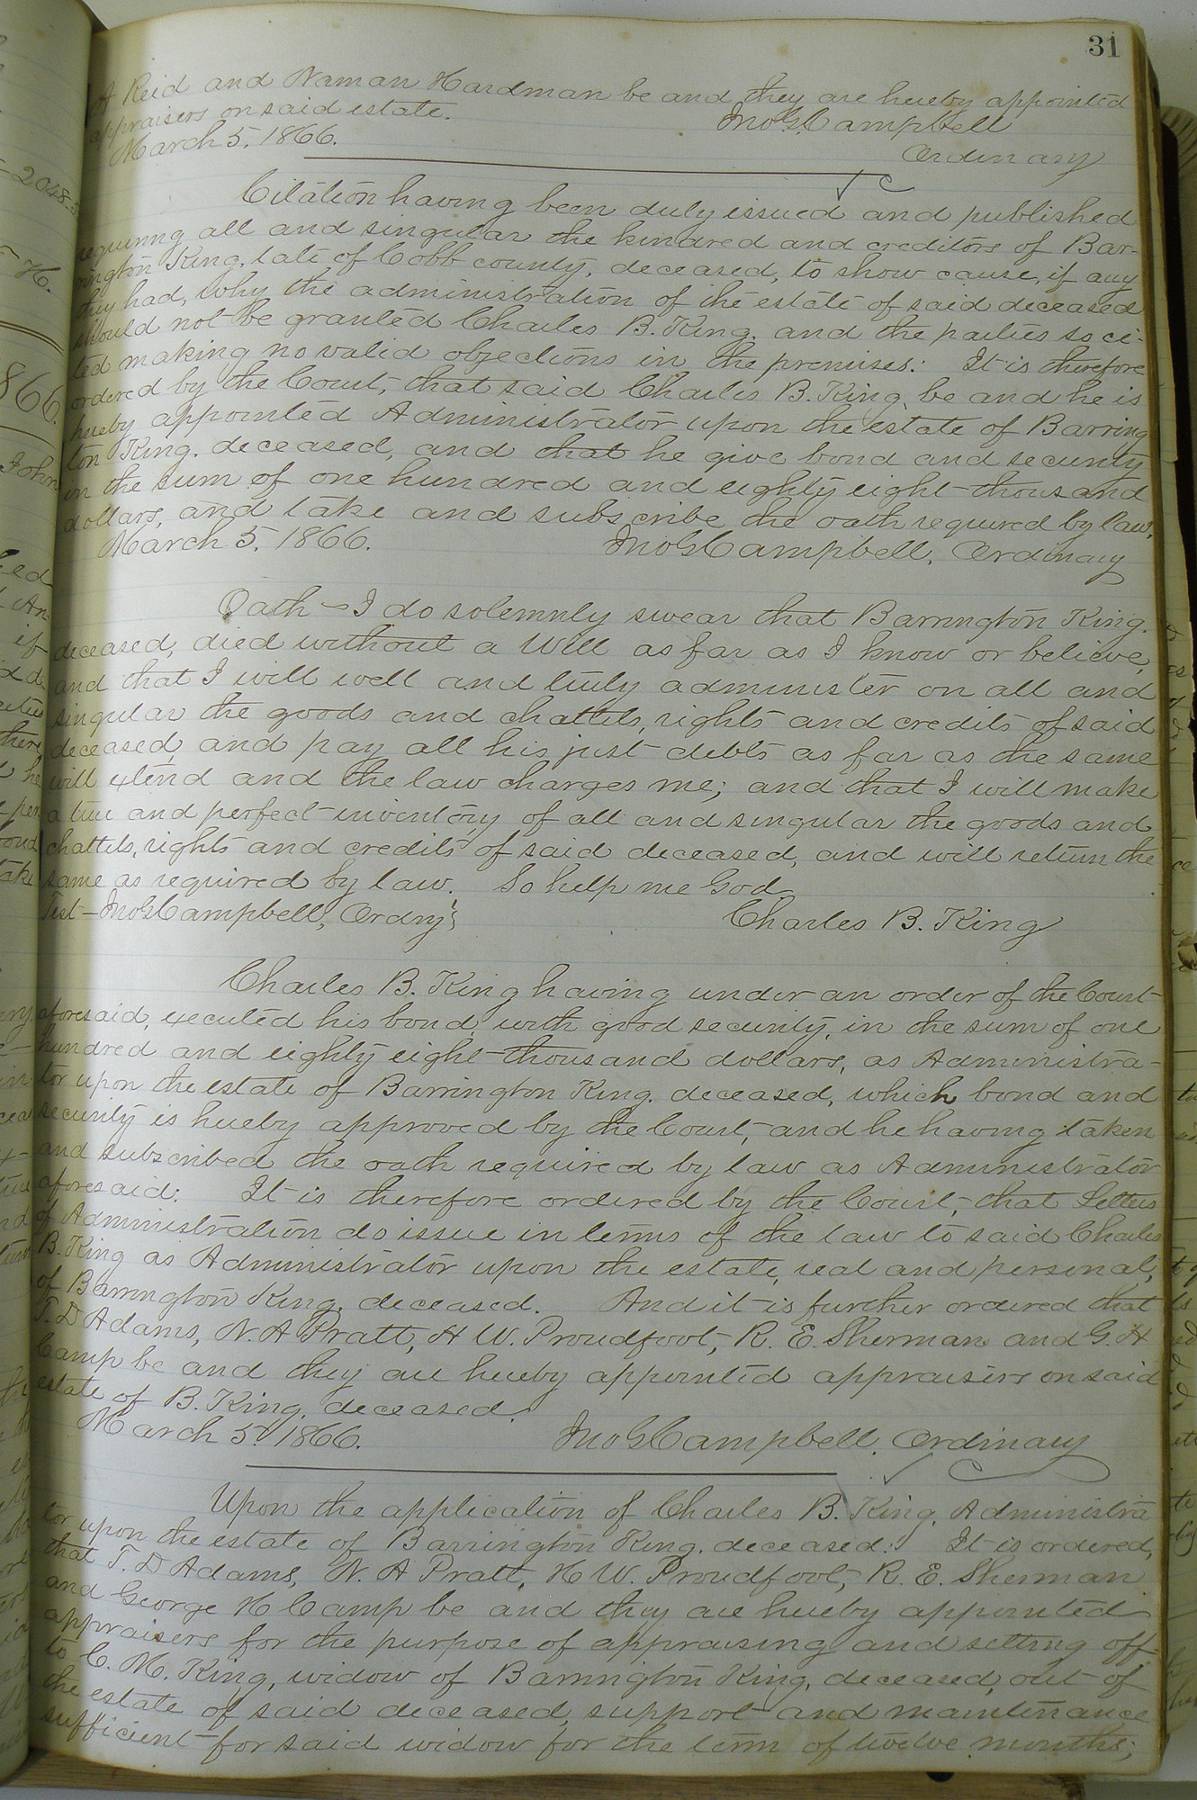 31
A Reid and Naman Hardman be and they are hereby appointed
appraisers on said estate.
Jno G Campbell
March 5, 1866.
Ordinary
Citation having been duly issued and published
requiring all and singular the kindred and creditors of Bar-
rington King, late of Cobb county, deceased, to show cause, if any
they had, why the administration of the estate of said deceased
should not be granted Charles B. King, and the parties so ci-
ted making no valid objections in the premises: It is therefore
ordered by the Court, that said Charles B. King, be and he is
hereby appointed Administrator upon the estate of Barring
ton King, deceased, and that he give bond and security
in the sum of one hundred and eighty eight thousand
dollars, and take and subscribe the oath required by law,
March 5, 1866. Jno G Campbell, Ordinary
Oath — I do solemnly swear that Barrington King,
deceased, died without a Will as far as I know or believe,
and that I will well and truly administer on all and
singular the goods and chattels, rights and credits of said
deceased, and pay all his just debts as far as the same
will extend and the law charges me; and that I will make
a true and perfect inventory of all and singular the goods and
chattels, rights and credits of said deceased, and will return the
same as required by law. So help me God,
Test — Jno G Campbell, Ordry
Charles B. King
Charles B. King having under an order of the Court
aforesaid, executed his bond, with good security, in the sum of one
hundred and eighty eight thousand dollars, as Administra-
tor upon the estate of Barrington King, deceased, which bond and
security is hereby approved by the Court, and he having taken
and subscribed the oath required by law as Administrator
aforesaid: It is therefore ordered by the Court, that Letters
of Administration do issue in terms of the law to said Charles
B. King as Administrator upon the estate, real and personal,
of Barrington King, deceased. And it is further ordered that
T. D Adams, N. A Pratt, H W. Proudfoot, R. E. Sherman and G. H
Camp be and they are hereby appointed appraisers on said
estate of B. King, deceased.
March 5, 1866. Jno G Campbell, Ordinary
Upon the application of Charles B. King, Administra
tor upon the estate of Barrington King, deceased: It is ordered,
that T. D Adams, N. A Pratt, H W. Proudfoot, R. E. Sherman
and George H Camp be and they are hereby appointed
appraisers for the purpose of appraising and setting off
to C. M. King, widow of Barrington King, deceased, out of
the estate of said deceased, support and maintenance
sufficient for said widow for the term of twelve months;